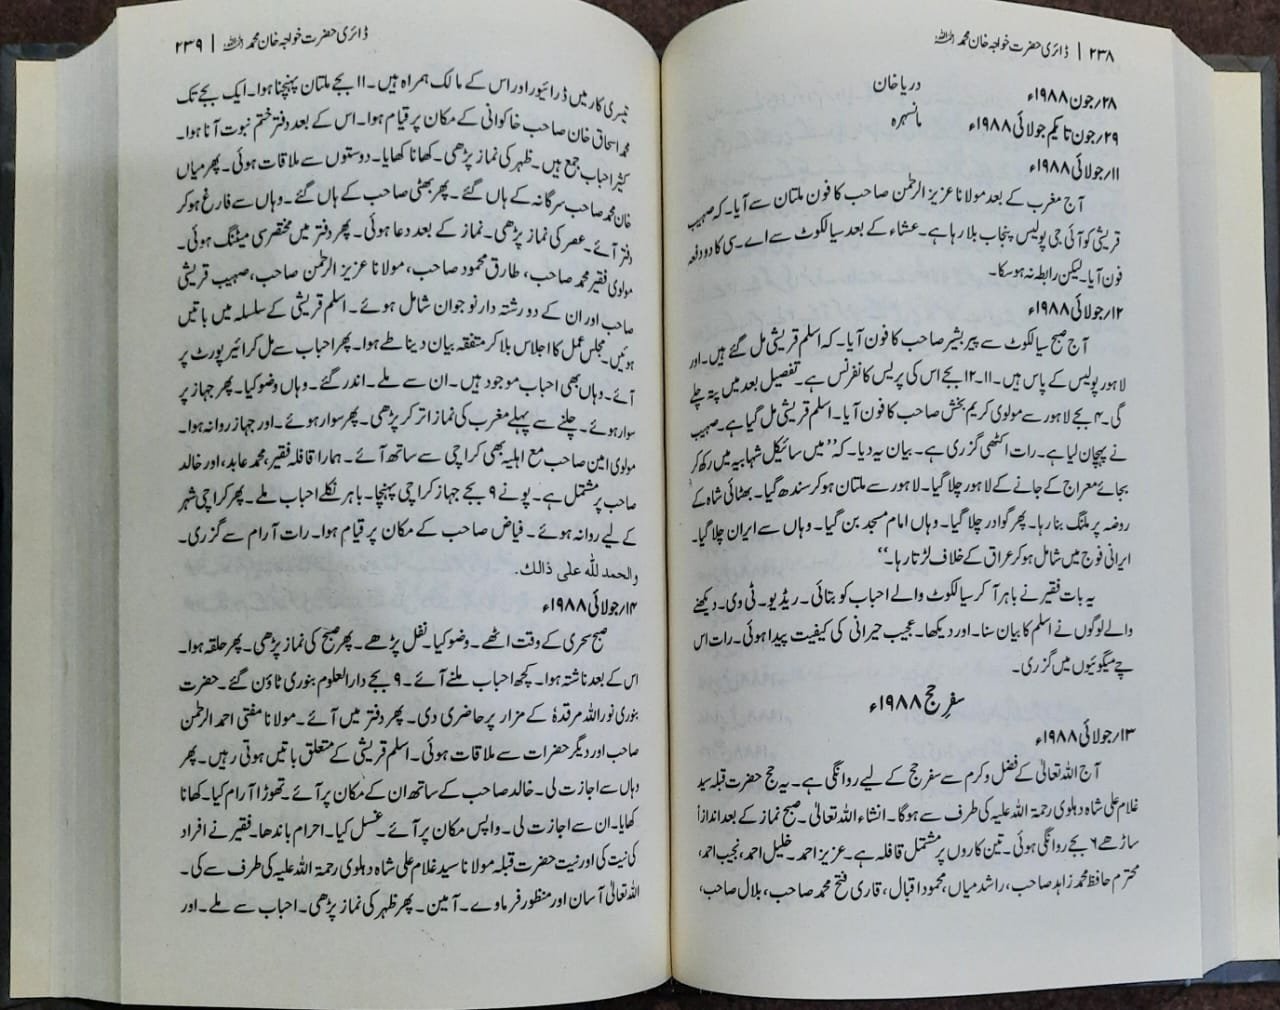 ۲۳۸ | ڈائری حضرت خواجہ خان محمد رحمہ اللہ
۲۸؍جون ۱۹۸۸ء دریا خان
۲۹؍جون تا یکم جولائی ۱۹۸۸ء مانسہرہ
۱۱؍جولائی ۱۹۸۸ء
آج مغرب کے بعد مولانا عزیز الرحمٰن صاحب کا فون ملتان سے آیا۔ کہ صہیب
قریشی کو آئی جی پولیس پنجاب بلا رہا ہے۔ عشاء کے بعد سیالکوٹ سے اے۔سی کا دو دفعہ
فون آیا۔ لیکن رابطہ نہ ہو سکا۔
۱۲؍جولائی ۱۹۸۸ء
آج صبح سیالکوٹ سے پیر بشیر صاحب کا فون آیا۔ کہ اسلم قریشی مل گئے ہیں۔ اور
لاہور پولیس کے پاس ہیں۔ ۱۱۔۱۲ بجے اس کی پریس کانفرنس ہے۔ تفصیل بعد میں پتہ چلے
گی۔ ۴ بجے لاہور سے مولوی کریم بخش صاحب کا فون آیا۔ اسلم قریشی مل گیا ہے۔ صہیب
نے پہچان لیا ہے۔ رات اکٹھی گزری ہے۔ بیان یہ دیا۔ کہ ’’میں سائیکل شہابیہ میں رکھ کر
بجائے معراج کے جانے کے لاہور چلا گیا۔ لاہور سے ملتان ہو کر سندھ گیا۔ بھٹائی شاہ کے
روضہ پر ملنگ بنا رہا۔ پھر گوادر چلا گیا۔ وہاں امام مسجد بن گیا۔ وہاں سے ایران چلا گیا۔
ایرانی فوج میں شامل ہو کر عراق کے خلاف لڑتا رہا۔‘‘
یہ بات فقیر نے باہر آ کر سیالکوٹ والے احباب کو بتائی۔ ریڈیو۔ ٹی وی۔ دیکھنے
والے لوگوں نے اسلم کا بیان سنا۔ اور دیکھا۔ عجیب حیرانی کی کیفیت پیدا ہوئی۔ رات اس
چہ میگوئیوں میں گزری۔
سفرِ حج ۱۹۸۸ء
۱۳؍جولائی ۱۹۸۸ء
آج اللہ تعالیٰ کے فضل و کرم سے سفر حج کے لیے روانگی ہے۔ یہ حج حضرت قبلہ سید
غلام علی شاہ دہلوی رحمۃ اللہ علیہ کی طرف سے ہوگا۔ انشاء اللہ تعالیٰ۔ صبح نماز کے بعد اندازاً
ساڑھے ۶ بجے روانگی ہوئی۔ تین کاروں پر مشتمل قافلہ ہے۔ عزیز احمد۔ خلیل احمد، نجیب احمد،
محترم حافظ محمد زاہد صاحب، راشد میاں، محمود اقبال، قاری فتح محمد صاحب، بلال صاحب،
ڈائری حضرت خواجہ خان محمد رحمہ اللہ | ۲۳۹
تیسری کار میں ڈرائیور اور اس کے مالک ہمراہ ہیں۔ ۱۱ بجے ملتان پہنچنا ہوا۔ ایک بجے تک
محمد اسحاق خان صاحب خاکوانی کے مکان پر قیام ہوا۔ اس کے بعد دفتر ختم نبوت آنا ہوا۔
کثیر احباب جمع ہیں۔ ظہر کی نماز پڑھی۔ کھانا کھایا۔ دوستوں سے ملاقات ہوئی۔ پھر میاں
خان محمد صاحب سرگانہ کے ہاں گئے۔ پھر بھٹی صاحب کے ہاں گئے۔ وہاں سے فارغ ہو کر
دفتر آئے۔ عصر کی نماز پڑھی۔ نماز کے بعد دعا ہوئی۔ پھر دفتر میں مختصر سی میٹنگ ہوئی۔
مولوی فقیر محمد صاحب، طارق محمود صاحب، مولانا عزیز الرحمٰن صاحب، صہیب قریشی
صاحب اور ان کے دو رشتہ دار نوجوان شامل ہوئے۔ اسلم قریشی کے سلسلہ میں باتیں
ہوئیں۔ مجلس عمل کا اجلاس بلا کر متفقہ بیان دینا طے ہوا۔ پھر احباب سے مل کر ائیر پورٹ پر
آئے۔ وہاں بھی احباب موجود ہیں۔ ان سے ملے۔ اندر گئے۔ وہاں وضو کیا۔ پھر جہاز پر
سوار ہوئے۔ چلنے سے پہلے مغرب کی نماز اتر کر پڑھی۔ پھر سوار ہوئے۔ اور جہاز روانہ ہوا۔
مولوی امین صاحب مع اہلیہ بھی کراچی سے ساتھ آئے۔ ہمارا قافلہ فقیر، محمد عابد، اور خالد
صاحب پر مشتمل ہے۔ پونے ۹ بجے جہاز کراچی پہنچا۔ باہر نکلے احباب ملے۔ پھر کراچی شہر
کے لیے روانہ ہوئے۔ فیاض صاحب کے مکان پر قیام ہوا۔ رات آرام سے گزری۔
والحمد للّٰہ علی ذالک۔
۱۴؍جولائی ۱۹۸۸ء
صبح سحری کے وقت اٹھے۔ وضو کیا۔ نفل پڑھے۔ پھر صبح کی نماز پڑھی۔ پھر حلقہ ہوا۔
اس کے بعد ناشتہ ہوا۔ کچھ احباب ملنے آئے۔ ۹ بجے دارالعلوم بنوری ٹاؤن گئے۔ حضرت
بنوری نور اللہ مرقدہٗ کے مزار پر حاضری دی۔ پھر دفتر میں آئے۔ مولانا مفتی احمد الرحمٰن
صاحب اور دیگر حضرات سے ملاقات ہوئی۔ اسلم قریشی کے متعلق باتیں ہوتی رہیں۔ پھر
وہاں سے اجازت لی۔ خالد صاحب کے ساتھ ان کے مکان پر آئے۔ تھوڑا آرام کیا۔ کھانا
کھایا۔ ان سے اجازت لی۔ واپس مکان پر آئے۔ غسل کیا۔ احرام باندھا۔ فقیر نے افراد
کی نیت کی اور نیت حضرت قبلہ مولانا سید غلام علی شاہ دہلوی رحمۃ اللہ علیہ کی طرف سے کی۔
اللہ تعالیٰ آسان اور منظور فرماوے۔ آمین۔ پھر ظہر کی نماز پڑھی۔ احباب سے ملے۔ اور